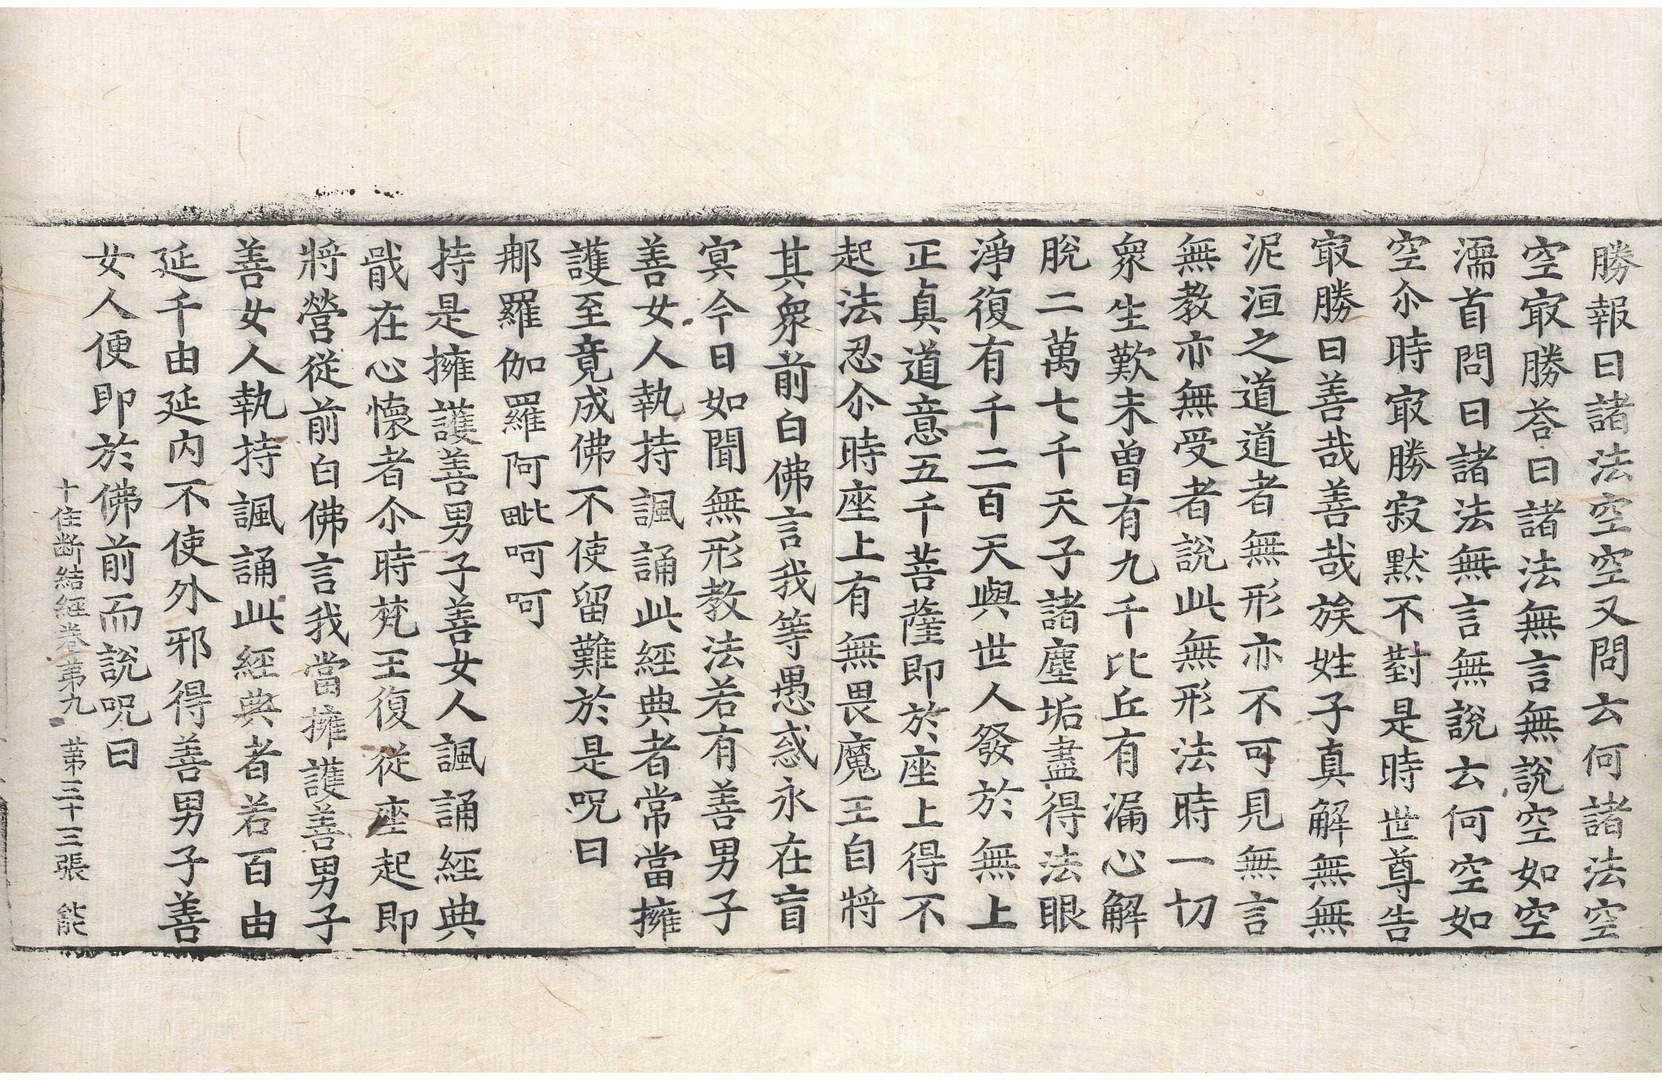 勝報曰諸法空空又問云何諸法空
空㝡勝荅曰諸法無言無說空如空
濡首問曰諸法無言無說云何空如
空尒時㝡勝寂默不對是時世尊告
㝡勝曰善哉善哉族姓子真解無無
泥洹之道道者無形亦不可見無言
無教亦無受者說此無形法時一切
衆生歎未曾有九千比丘有漏心解
脫二萬七千天子諸塵垢盡得法眼
淨復有千二百天與世人發於無上
正真道意五千菩薩即於座上得不
起法忍尒時座上有無畏魔王自將
其衆前白佛言我等愚惑永在盲
冥今日如聞無形教法若有善男子
善女人執持諷誦此經典者常當擁
護至竟成佛不使留難於是呪曰
那羅伽羅阿毗呵呵
持是擁護善男子善女人諷誦經典
戢在心懷者尒時梵王復從座起即
將營從前白佛言我當擁護善男子
善女人執持諷誦此經典者若百由
延千由延內不使外邪得善男子善
女人便即於佛前而說呪曰
十住斷結經卷第九 第三十三張 能